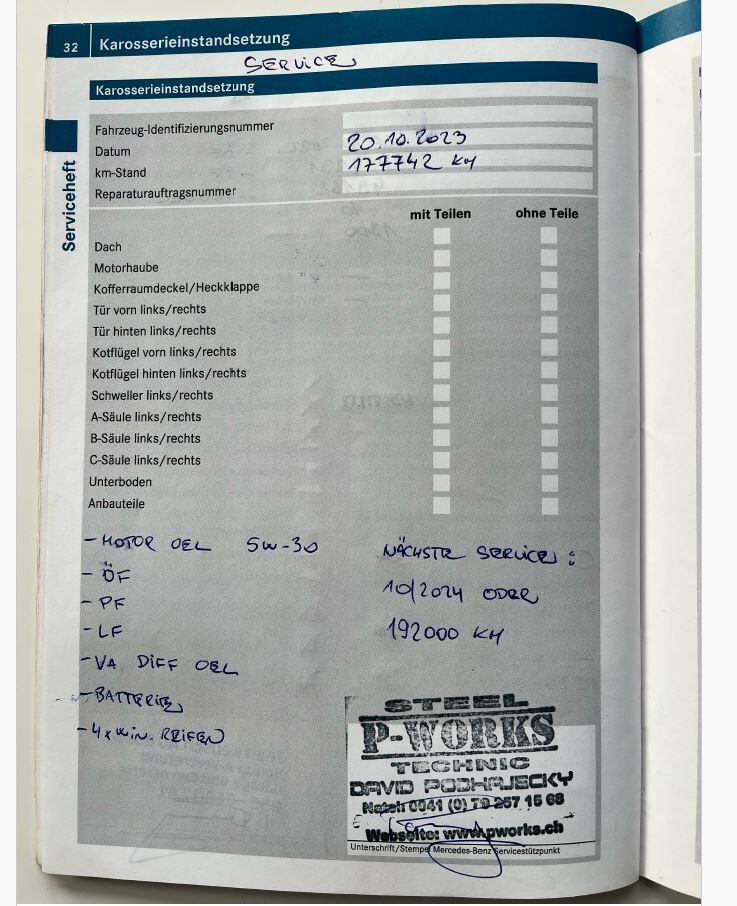 32 Karosserieinstandsetzung
SERVICE
Karosserieinstandsetzung
Serviceheft
Fahrzeug-Identifizierungsnummer
Datum 20.10.2023
km-Stand 177742 KM
Reparaturauftragsnummer
mit Teilen ohne Teile
Dach
Motorhaube
Kofferraumdeckel/Heckklappe
Tür vorn links/rechts
Tür hinten links/rechts
Kotflügel vorn links/rechts
Kotflügel hinten links/rechts
Schweller links/rechts
A-Säule links/rechts
B-Säule links/rechts
C-Säule links/rechts
Unterboden
Anbauteile
- MOTOR OEL 5W-30
- ÖF
- PF
- LF
- VA DIFF OEL
- BATTERIE
- 4x WIN. REIFEN
NÄCHSTE SERVICE:
10/2024 ODER
192000 KM
STEEL
P-WORKS
TECHNIC
DAVID PODHAJECKY
Natel: 0041 (0) 79 257 15 68
Webseite: www.pworks.ch
Unterschrift/Stempel Mercedes-Benz Servicestützpunkt